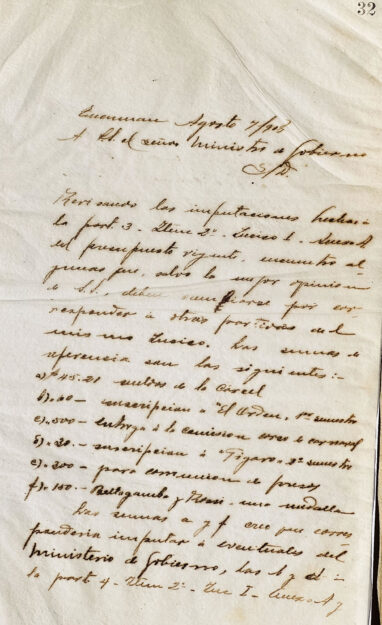 32
Tucuman Agosto 7/905
A S.S. el señor Ministro de Gobierno
S/D.
Revisando las imputaciones hechas a
la part. 3 - Item 2º - Inciso 1 - Anexo A
del presupuesto vigente, encuentro al-
gunas que, salvo la mejor opinion
de S.S., deben por cor-
responder á otras partidas del
mismo Inciso. Las sumas de
referencia son las siguientes:-
a) $ 45.21 de la Carcel
b) " 60 - suscripcion a "El Orden", 1er semestre
c) " 500 - entrega á la comision corso de carnaval
d) " 20 - suscripcion á "Figaro" 2º semestre
e) " 200 - para comunion de presos
f) " 100 - y Rossi - una medalla
Las sumas a y f creo que corres
ponderia imputar á eventuales del
Ministerio de Gobierno, las b y d -
la part 4 - Item 2º - Inc I - Anexo A y